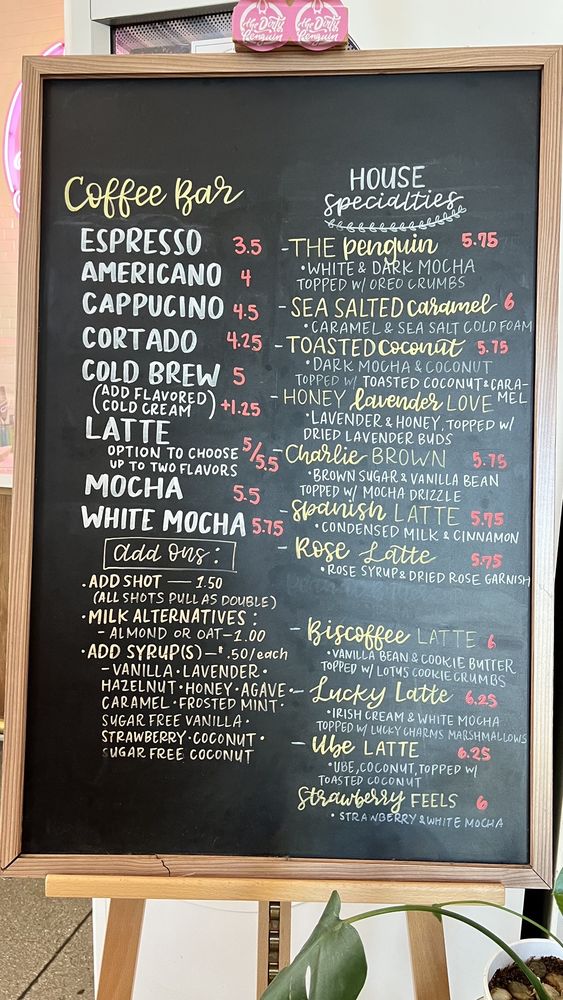 the Dirty Penguin
the Dirty Penguin
Coffee Bar
ESPRESSO 3.5
AMERICANO 4
CAPPUCINO 4.5
CORTADO 4.25
COLD BREW 5
(ADD FLAVORED
COLD CREAM) +1.25
LATTE
OPTION TO CHOOSE 5/5.5
UP TO TWO FLAVORS
MOCHA 5.5
WHITE MOCHA 5.75
add ons:
• ADD SHOT — 1.50
(ALL SHOTS PULL AS DOUBLE)
• MILK ALTERNATIVES:
- ALMOND OR OAT - 1.00
• ADD SYRUP(S) - $.50/each
- VANILLA • LAVENDER •
HAZELNUT • HONEY • AGAVE •
CARAMEL • FROSTED MINT •
SUGAR FREE VANILLA •
STRAWBERRY • COCONUT •
SUGAR FREE COCONUT
HOUSE
specialties
- THE penguin 5.75
• WHITE & DARK MOCHA
TOPPED W/ OREO CRUMBS
- SEA SALTED caramel 6
• CARAMEL & SEA SALT COLD FOAM
- TOASTED coconut 5.75
• DARK MOCHA & COCONUT
TOPPED W/ TOASTED COCONUT & CARA-
MEL
- HONEY lavender LOVE
• LAVENDER & HONEY, TOPPED W/
DRIED LAVENDER BUDS
- Charlie BROWN 5.75
• BROWN SUGAR & VANILLA BEAN
TOPPED W/ MOCHA DRIZZLE
- Spanish LATTE 5.75
• CONDENSED MILK & CINNAMON
- Rose Latte 5.75
• ROSE SYRUP & DRIED ROSE GARNISH
- Biscoffee LATTE 6
• VANILLA BEAN & COOKIE BUTTER
TOPPED W/ LOTUS COOKIE CRUMBS
- Lucky Latte 6.25
• IRISH CREAM & WHITE MOCHA
TOPPED W/ LUCKY CHARMS MARSHMALLOWS
- Ube LATTE 6.25
• UBE, COCONUT, TOPPED W/
TOASTED COCONUT
Strawberry FEELS 6
• STRAWBERRY & WHITE MOCHA